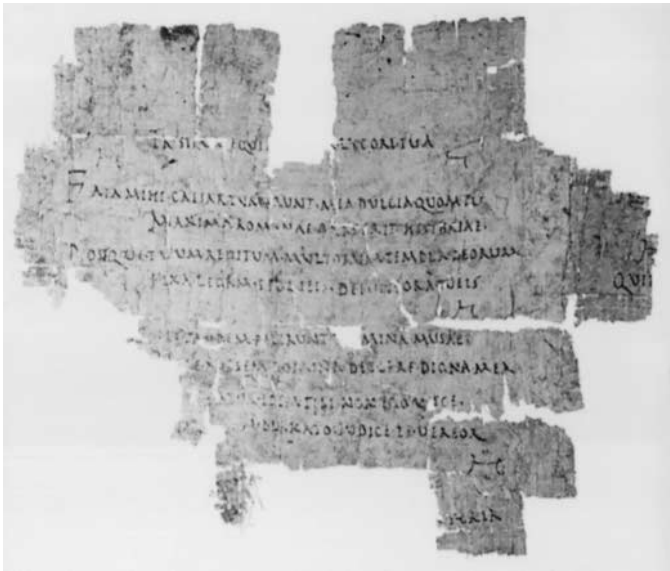 TRISTIA NEQVIT A LYCORI TVA
FATA MIHI CAESAR TVM ERVNT MEA DVLCIA QVOM TV
MAXIMA ROMANAE PARS ERIT HISTORIAE
POSTQVE TVVM REDITVM MVLTORVM TEMPLA DEORVM
FIXA LEGAM SPOLIEIS DEIVITIORA TVEIS
QVI
TANDEM FECERVNT MINA MVSAE
POSSEM DOMINA DEICERE DIGNA MEA
ATVR IDEM TIBI NON EGO VISCE
KATO IVDICE TE VEREOR
TYRIA